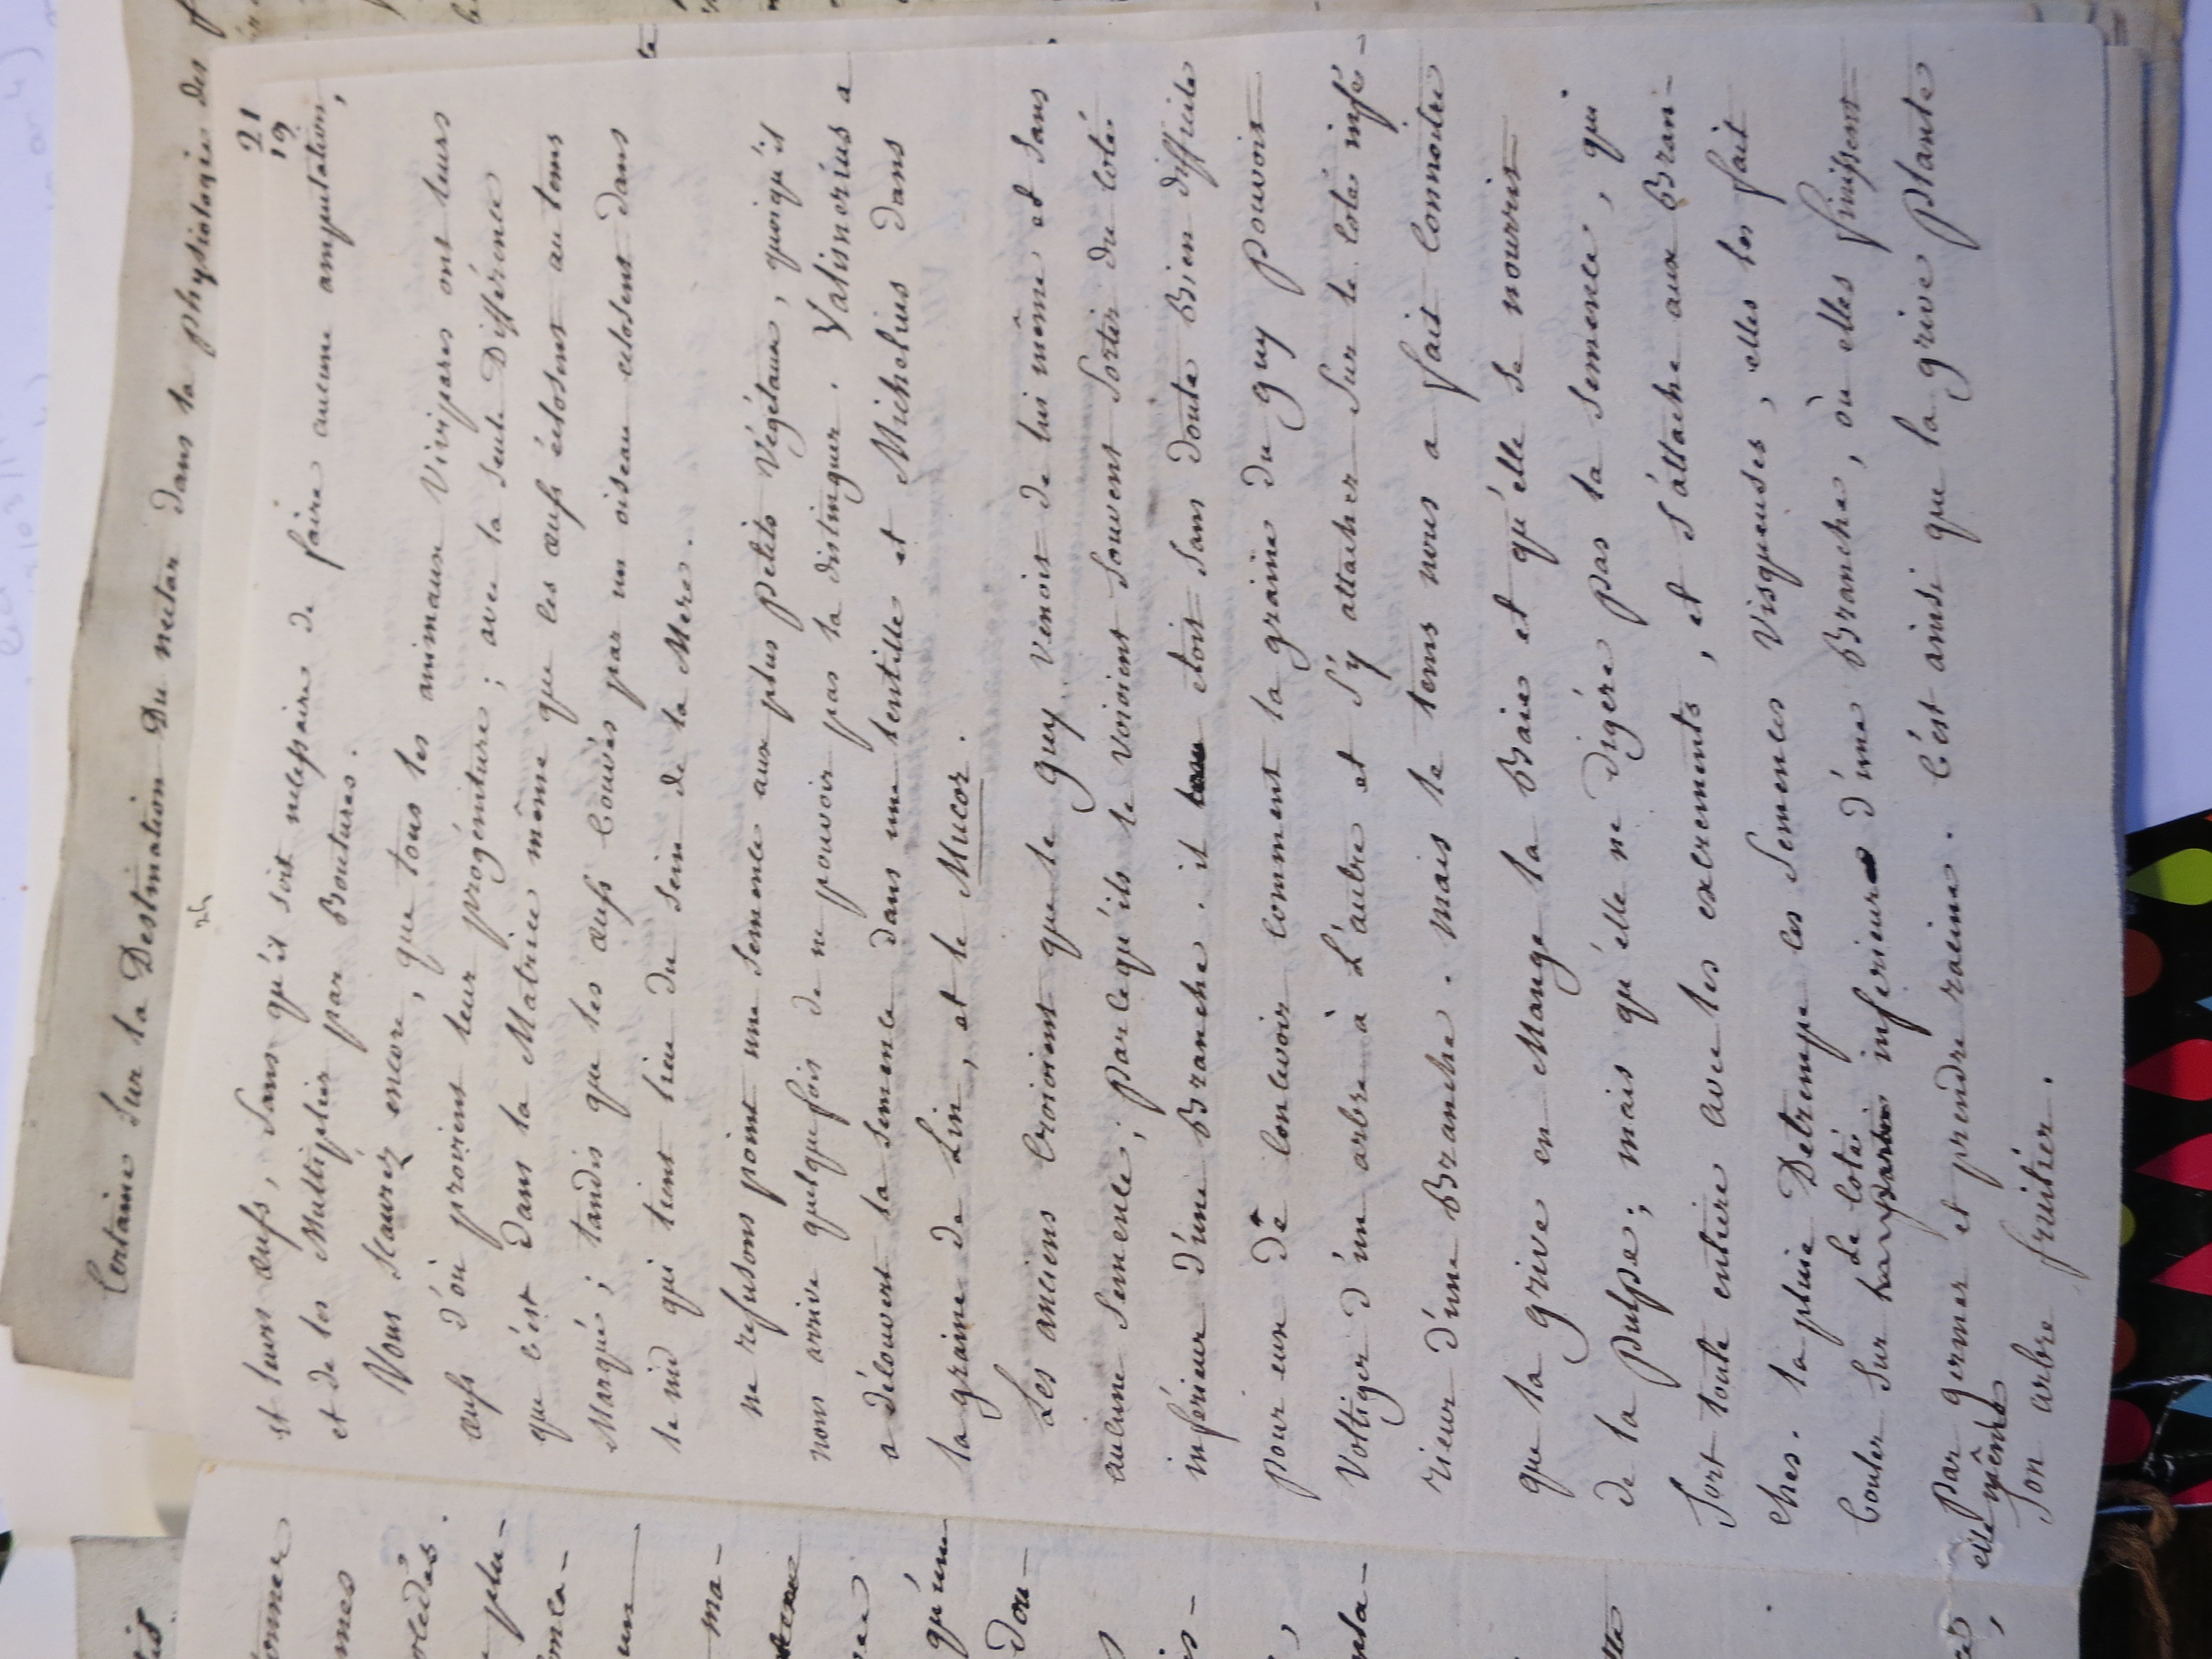 Certaine sur la Destination Du nectar dans la physiologie des
21
19
et leurs œufs, sans qu'il soit necessaire de faire aucune amputation,
et de les Multiplier par Boutures.
Vous sçaurez encore, que tous les animaux Vivipares ont leurs
œufs d'où provient leur progéniture; avec la seule Différence
que c'est dans la Matrice même que les œufs éclosent au tems
Marqué; tandis que les œufs couvés par un oiseau eclosent dans
le nid qui tient lieu du sein de la Mere.
ne refusons point une semence aux plus petits Végétaux, quoiqu'il
nous arrive quelquefois de ne pouvoir pas la distinguer. Valisnerius a
a découvert la semence dans une lentille et Michelius dans
la graine de Lin, et le Mucor.
Les anciens croioient que le guy venoit de lui même et sans
aucune semence; parcequ'ils le voioient souvent sortir du coté
inférieur d'une Branche. il etoit sans doute Bien difficile
pour eux de concevoir comment la graine du guy pouvoit
Voltiger d'un arbre à L'autre et s'y attacher sur le coté infé-
rieur d'une Branche. mais le tems nous a fait connoitre
que la grive en Mange la Baie et qu'elle se nourrit
de la pulpe; mais qu'elle ne digére pas la semence, qui
sort toute entiere avec les excrements, et s'attache aux Bran-
ches. la pluie Detrempe ces semences visqueuses, elles les fait
Le coté
couler sur la partie inferieure d'une Branche, où elles finissent
par germer et prendre racine. c'est ainsi que la grive plante
elle même
son arbre fruitier.